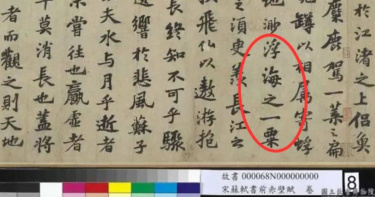 於江渚之上侶魚
麋鹿駕一葉之扁
匏罇以相屬寄蜉
地渺浮海之一粟
之須臾羨長江之
挾飛仙以遨游抱
長終知不可乎驟
遺響於悲風蘇子
夫水與月乎逝者
未嘗往也贏虛者
卒莫消長也蓋將
者而觀之則天地
故書 000068N000000000
宋蘇軾書前赤壁賦 卷
8
國立故宮博物院